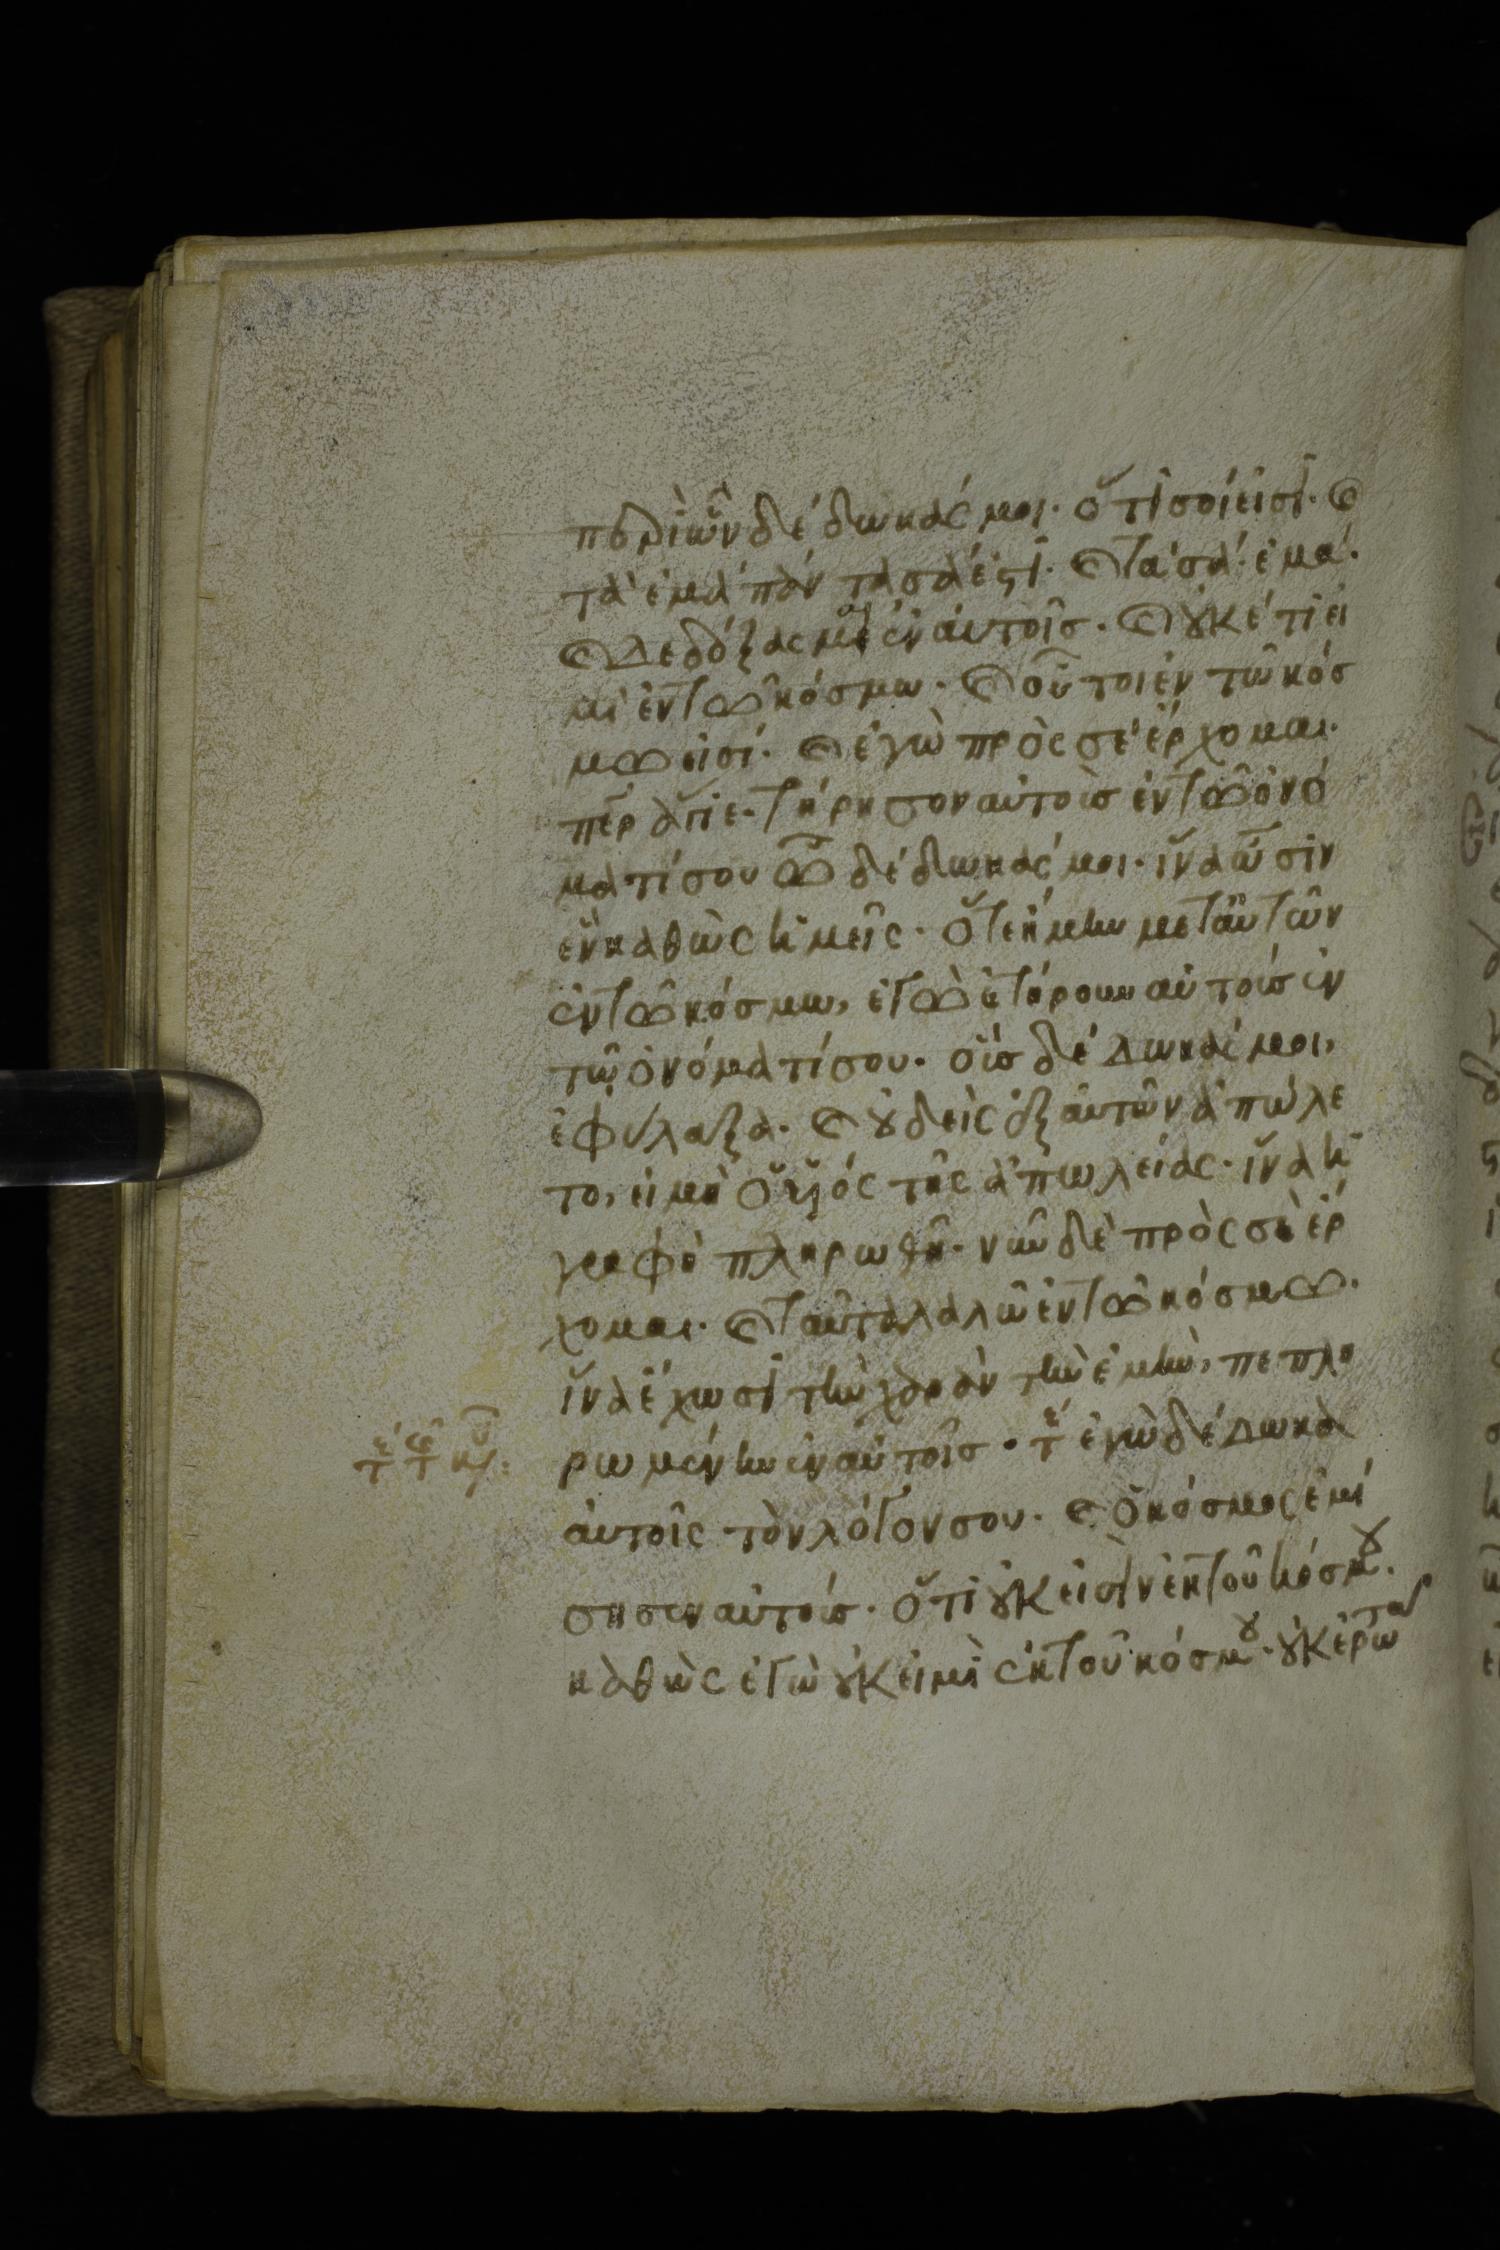 περὶ ὧν δέδωκάς μοι· ὅτι σοί εἰσι· καὶ
τὰ ἐμὰ πάντα σά ἐστι· καὶ τὰ σὰ ἐμά·
καὶ δεδόξασμαι ἐν αὐτοῖς· καὶ οὐκέτι εἰ
μὶ ἐν τῶ κόσμω· καὶ οὗτοι ἐν τῶ κόσ
μω εἰσί· καὶ ἐγὼ πρός σε ἔρχομαι·
περ ἅγιε· τήρησον αὐτοὺς ἐν τῶ ὀνό
ματί σου ὧ δέδωκάς μοι· ἵνα ὦσιν
ἓν καθὼς ἡμεῖς· ὅτε ἤμην μετ αὐτῶν
ἐν τῶ κόσμω, ἐγὼ ἐτήρουν αὐτοὺς ἐν
τῶ ὀνόματί σου· οὓς δέδωκάς μοι,
ἐφύλαξα· καὶ οὐδεὶς ἐξ αὐτῶν ἀπώλε
το, εἰ μὴ ὁ υἱός τῆς ἀπωλείας· ἵνα ἡ
γραφὴ πληρωθῆ· νῦν δὲ πρὸς σὲ ἔρ
χομαι· καὶ ταῦτα λαλῶ ἐν τῶ κόσμω·
ἵνα ἔχωσι τὴν χαρὰν τὴν ἐμὴν, πεπλη
ρωμένην ἐν αὐτοῖς· ἐγὼ δέδωκα
αὐτοῖς τὸν λόγον σου· καὶ ὁ κόσμος ἐμί
σησεν αὐτούς· ὅτι οὐκ εἰσὶν ἐκ τοῦ κόσμου·
καθὼς ἐγὼ οὐκ εἰμὶ ἐκ τοῦ κόσμου· οὐκ ἐρω